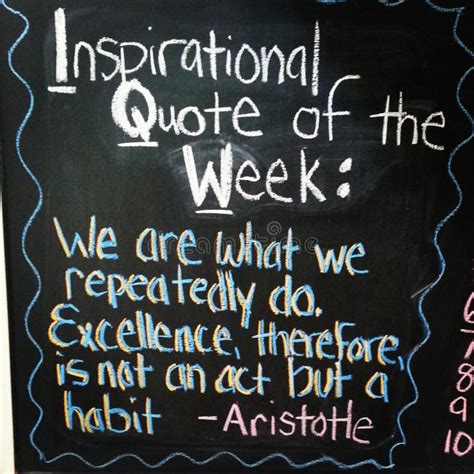 Inspirational
Quote of the
Week:
We are what we
repeatedly do.
Excellence, therefore,
is not an act but a
habit - Aristotle
6
7
8
9
10
dreamstime